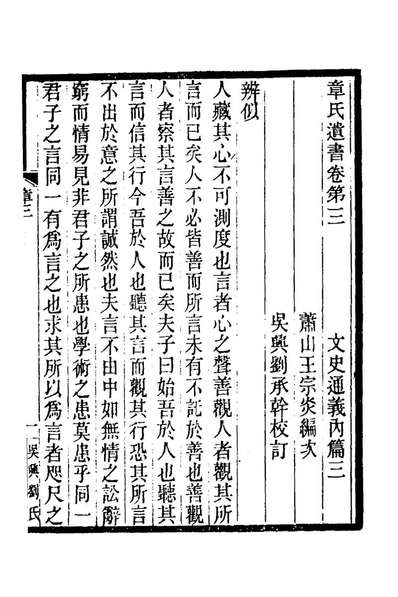 章氏遺書卷第三 文史通義內篇三
蕭山王宗炎編次
吳興劉承幹校訂
辨似
人藏其心不可測度也言者心之聲善觀人者觀其所
言而已矣人不必皆善而所言未有不託於善也善觀
人者察其言善之故而已矣夫子曰始吾於人也聽其
言而信其行今吾於人也聽其言而觀其行恐其所言
不出於意之所謂誠然也夫言不出中如無情之訟辭
窮而情易見非君子之所患也學術之患莫患乎同一
君子之言同一有爲言之也求其所以爲言者咫尺之
章三
一 吳興劉氏